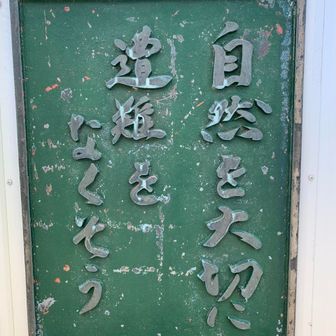 自然を大切に
遭難を
なくそう